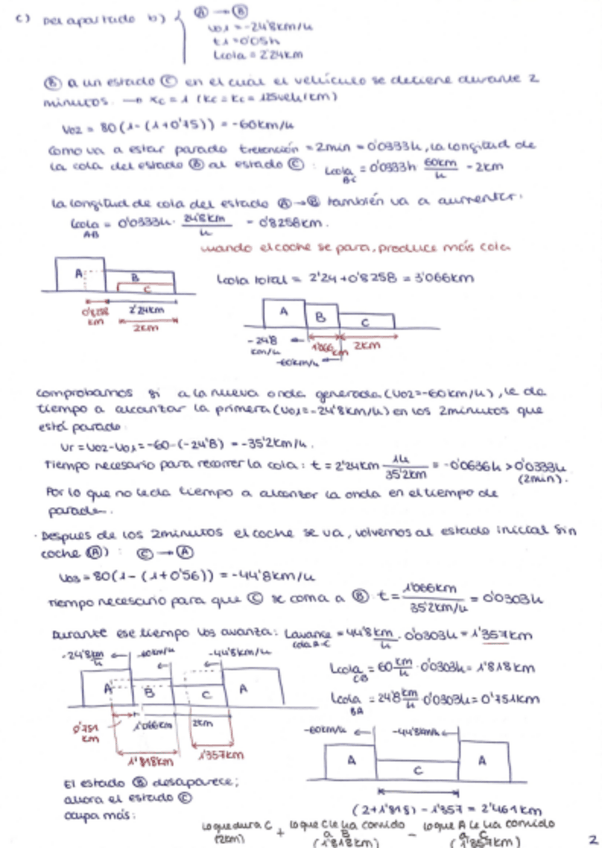 c) Del apartado b) { Ⓐ → Ⓑ
v01 = -24'8km/h
t1 = 0'05h
Lcola = 2'24km
Ⓑ a un estado Ⓒ en el cual el vehículo se detiene durante 2
minutos. → xc = 1 (kc = kc = 125veh/km)
v02 = 80(1-(1+0'75)) = -60km/h
Como va a estar parado tretención = 2min = 0'0333h, la longitud de
la cola del estado Ⓑ al estado Ⓒ : Lcola BC = 0'0333h 60km/h = 2km
La longitud de cola del estado Ⓐ→Ⓑ también va a aumentar:
Lcola AB = 0'0333h · 24'8km/h = 0'8258km.
cuando el coche se para, produce más cola
Lcola total = 2'24 + 0'8258 = 3'066km
A B C
0'8258 km 2'24km
2km
A B C
-24'8 km/h 1'066 km 2km
-60km/h
Comprobamos si a la nueva onda generada (v02 = -60km/h), le da
tiempo a alcanzar la primera (v01 = -24'8km/h) en los 2minutos que
está parado.
Vr = v02 - v01 = -60 - (-24'8) = -35'2km/h.
Tiempo necesario para recorrer la cola: t = 2'24km 1h/35'2km = -0'0636h > 0'0333h
(2min).
Por lo que no le da tiempo a alcanzar la onda en el tiempo de
parada.
· Después de los 2minutos el coche se va, volvemos al estado inicial sin
coche Ⓐ) : Ⓒ → Ⓐ
v03 = 80(1-(1+0'56)) = -44'8km/h
Tiempo necesario para que Ⓒ se coma a Ⓑ · t = 1'066km/35'2km/h = 0'0303h
Durante ese tiempo v03 avanza: Lavance cola A-C = 44'8 km/h · 0'0303h = 1'357km
-24'8km/h -60km/h -44'8km/h
Lcola CB = 60 km/h · 0'0303h = 1'818km
A B C A
Lcola BA = 24'8 km/h · 0'0303h = 0'751km
0'751 km 1'066km 2km
1'818km 1'357km
-60km/h -44'8km/h
A C A
El estado Ⓑ desaparece;
ahora el estado Ⓒ
ocupa más:
(2+1'818) - 1'357 = 2'461km
lo que dura C (2km) + lo que C le ha comido a B (1'818km) - lo que A le ha comido a C (1'357km)
2